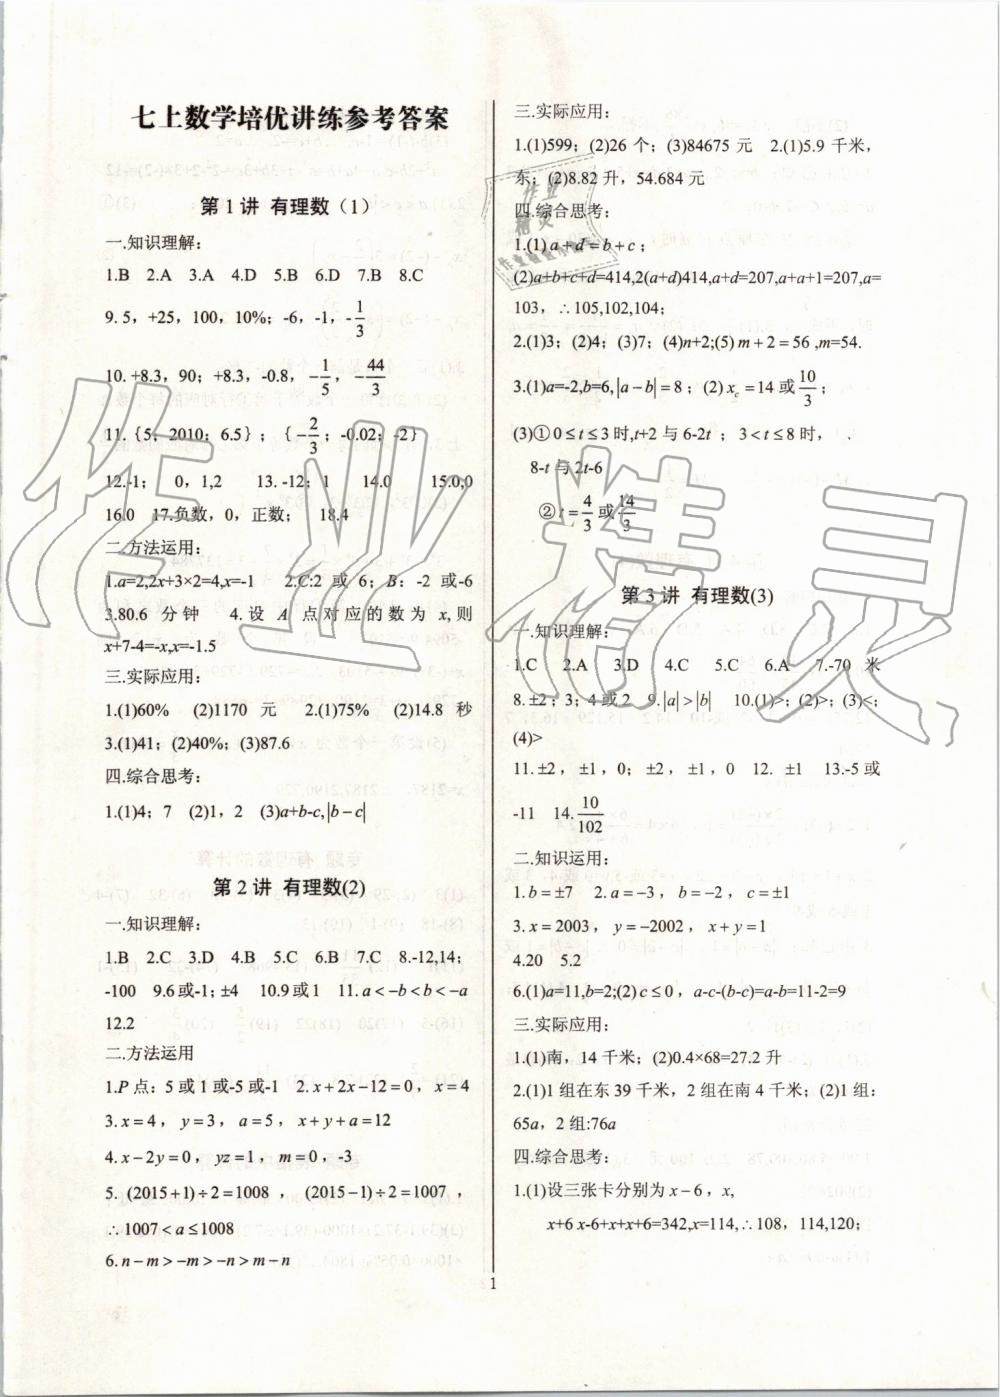 七上数学培优讲练参考答案
第 1 讲 有理数（1）
一.知识理解：
1.B 2.A 3.A 4.D 5.B 6.D 7.B 8.C
9. 5，+25，100，10%；-6，-1，-1/3
10. +8.3，90；+8.3，-0.8，-1/5，-44/3
11.｛5；2010；6.5｝；｛-2/3；-0.02；-2｝
12.-1； 0，1,2 13. -12；1 14.0 15.0;0
16.0 17.负数，0，正数； 18.4
二.方法运用：
1.a=2,2x+3×2=4,x=-1 2.C:2 或 6；B：-2 或-6
3.80.6 分钟 4.设 A 点对应的数为 x,则
x+7-4=-x,x=-1.5
三.实际应用：
1.(1)60% (2)1170 元 2.(1)75% (2)14.8 秒
3.(1)41；(2)40%；(3)87.6
四.综合思考：
1.(1)4；7 (2)1，2 (3)a+b-c,|b-c|
第 2 讲 有理数(2)
一.知识理解：
1.B 2.C 3.D 4.B 5.C 6.B 7.C 8.-12,14；
-100 9.6或-1；±4 10.9或1 11. a<-b<b<-a
12.2
二.方法运用
1.P 点：5 或 1 或-5 或-1 2. x+2x-12=0，x=4
3. x=4，y=3，a=5，x+y+a=12
4. x-2y=0，yz=1，m=0，-3
5. (2015+1)÷2=1008，(2015-1)÷2=1007，
∴1007<a≤1008
6. n-m>-m>-n>m-n
三.实际应用：
1.(1)599；(2)26 个；(3)84675 元 2.(1)5.9 千米，
东；(2)8.82 升，54.684 元
四.综合思考：
1.(1) a+d=b+c；
(2)a+b+c+d=414,2(a+d)414,a+d=207,a+a+1=207,a=
103，∴105,102,104；
2.(1)3；(2)4；(3)7；(4)n+2;(5) m+2=56 ,m=54.
3.(1)a=-2,b=6,|a-b|=8；(2) xc=14 或 10/3；
(3)① 0≤t≤3 时,t+2 与 6-2t；3<t≤8 时，
8-t 与 2t-6
② t=4/3 或 14/3
第 3 讲 有理数(3)
一.知识理解：
1.C 2.A 3.D 4.C 5.C 6.A 7.-70 米
8. ±2；3；4 或 2 9. |a|>|b| 10.(1)>；(2)>；(3)<；
(4)>
11. ±2，±1，0；±2，±1，0 12. ±1 13.-5 或
-11 14. 10/102
二.知识运用：
1. b=±7 2. a=-3，b=-2，c=±1
3. x=2003，y=-2002，x+y=1
4.20 5.2
6.(1)a=11,b=2;(2) c≤0，a-c-(b-c)=a-b=11-2=9
三.实际应用：
1.(1)南，14 千米；(2)0.4×68=27.2 升
2.(1)1 组在东 39 千米，2 组在南 4 千米；(2)1 组：
65a，2 组:76a
四.综合思考：
1.(1)设三张卡分别为 x-6，x,
x+6 x-6+x+x+6=342,x=114,∴108，114,120；
1
作业精灵
作业
精灵